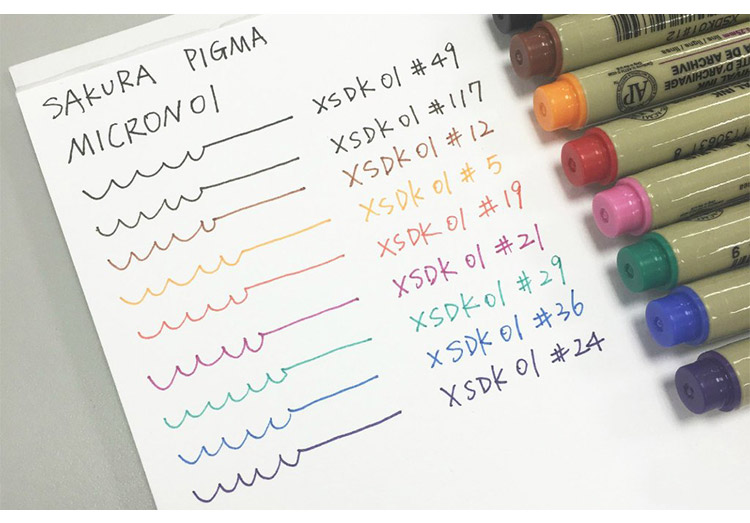 SAKURA PIGMA
MICRON 01
XSDK 01 #49
XSDK 01 #117
XSDK 01 #12
XSDK 01 # 5
XSDK 01 #19
XSDK 01 #21
XSDK 01 #29
XSDK 01 #36
XSDK 01 #24
XSDK01#12
DE ARCHIVE
TE D'ARCHIVAGE
VAL INK
AP